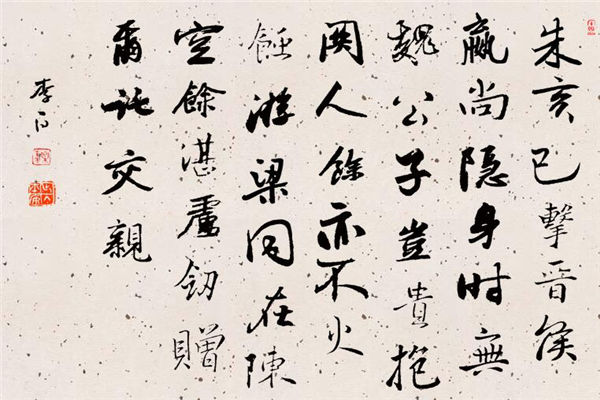 朱亥已擊晋侯
嬴尚隐身时無
魏公子豈貴抱
関人餘亦不火
游梁同在陳
空餘湛盧釼贈
爾託交親
李白